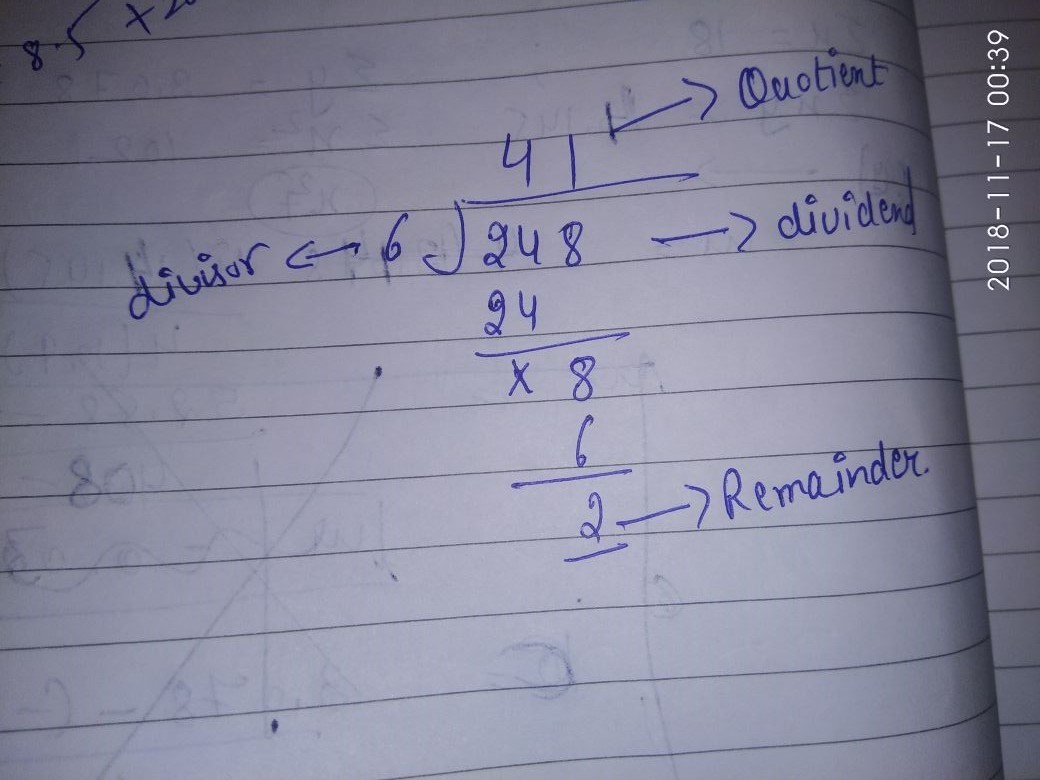 8.5 x
41 → Quotient
divisor ← 6 ) 248 → dividend
24
x 8
6
2 → Remainder.
2018-11-17 00:39